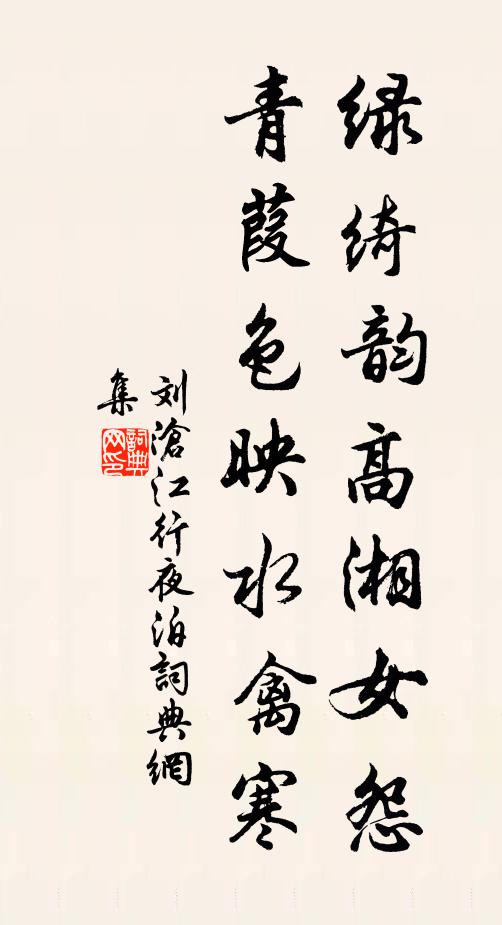 绿绮韵高湘女怨
青葭色映水禽寒
刘沧江行夜泊詞典網
集
詞典网印